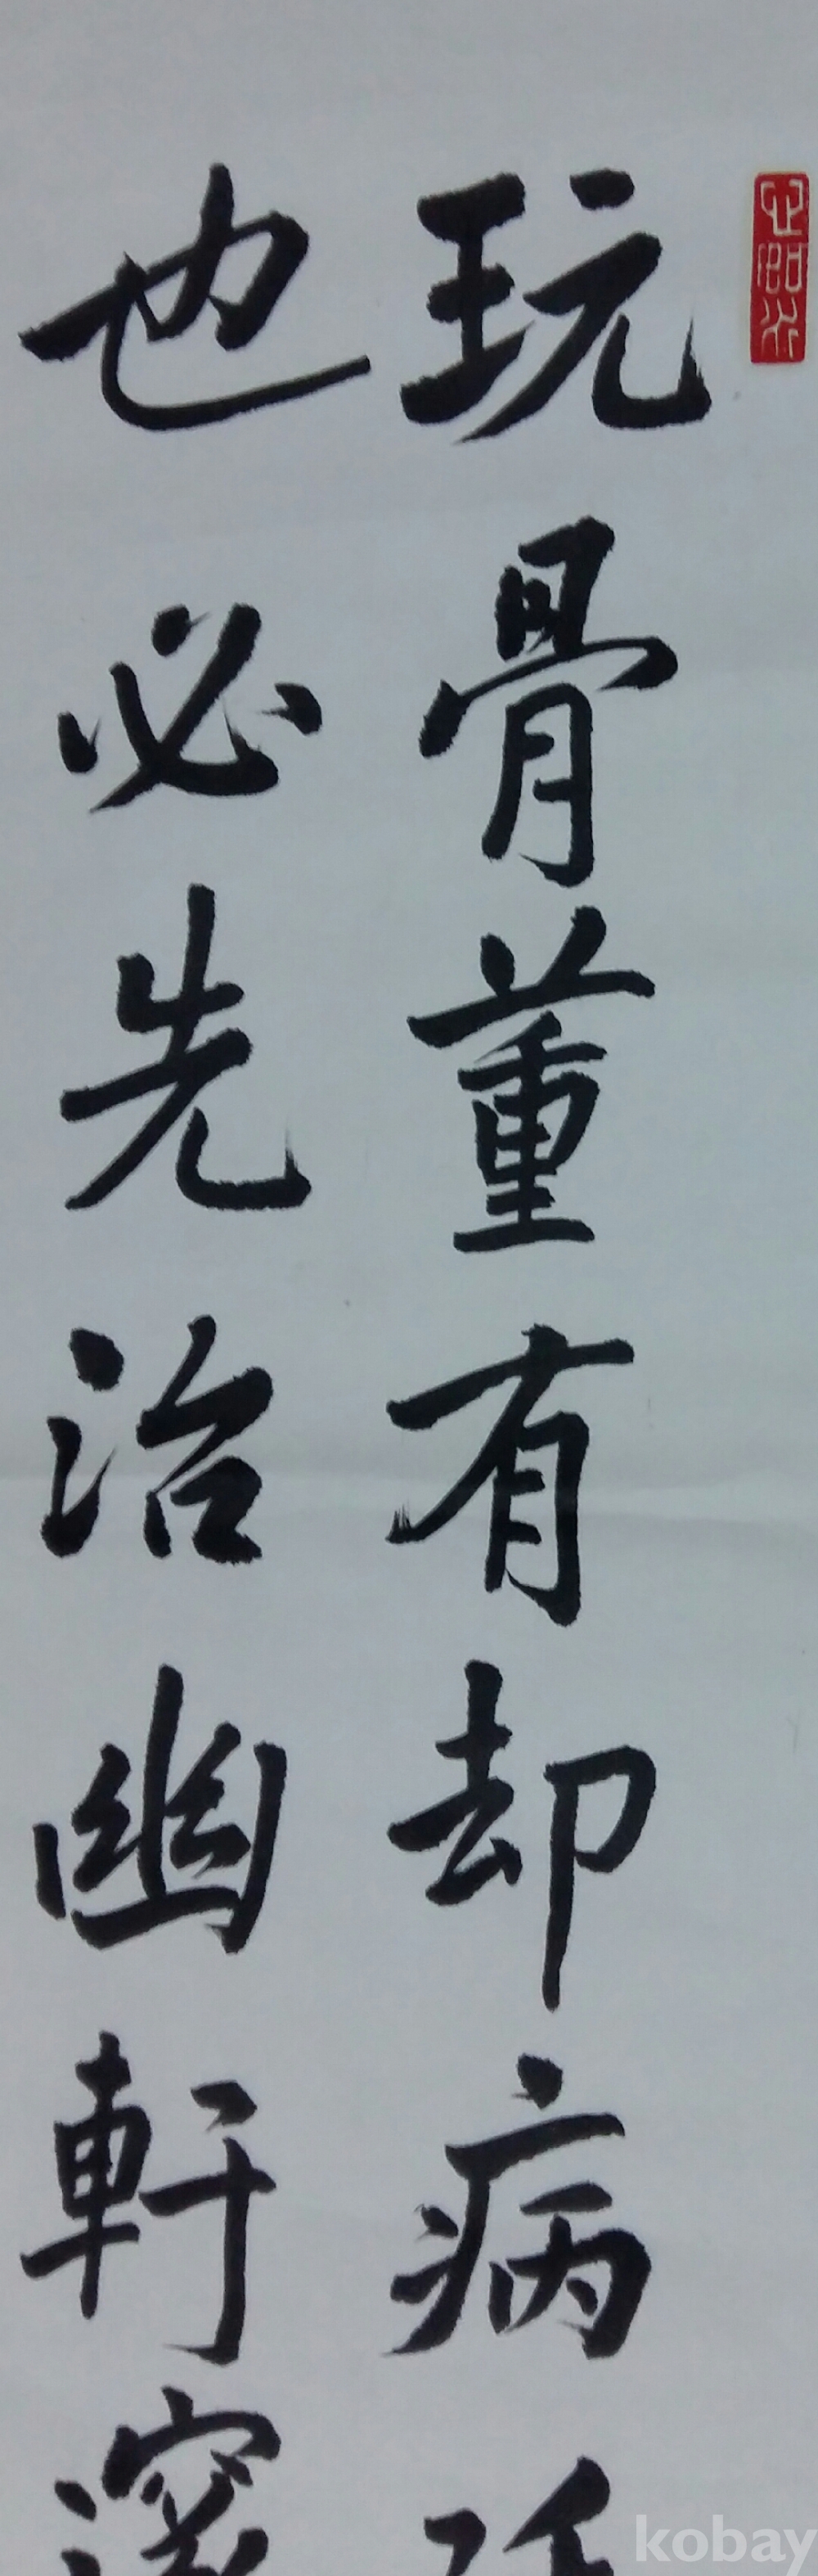 玩骨董有却病
也必先治幽軒
kobay